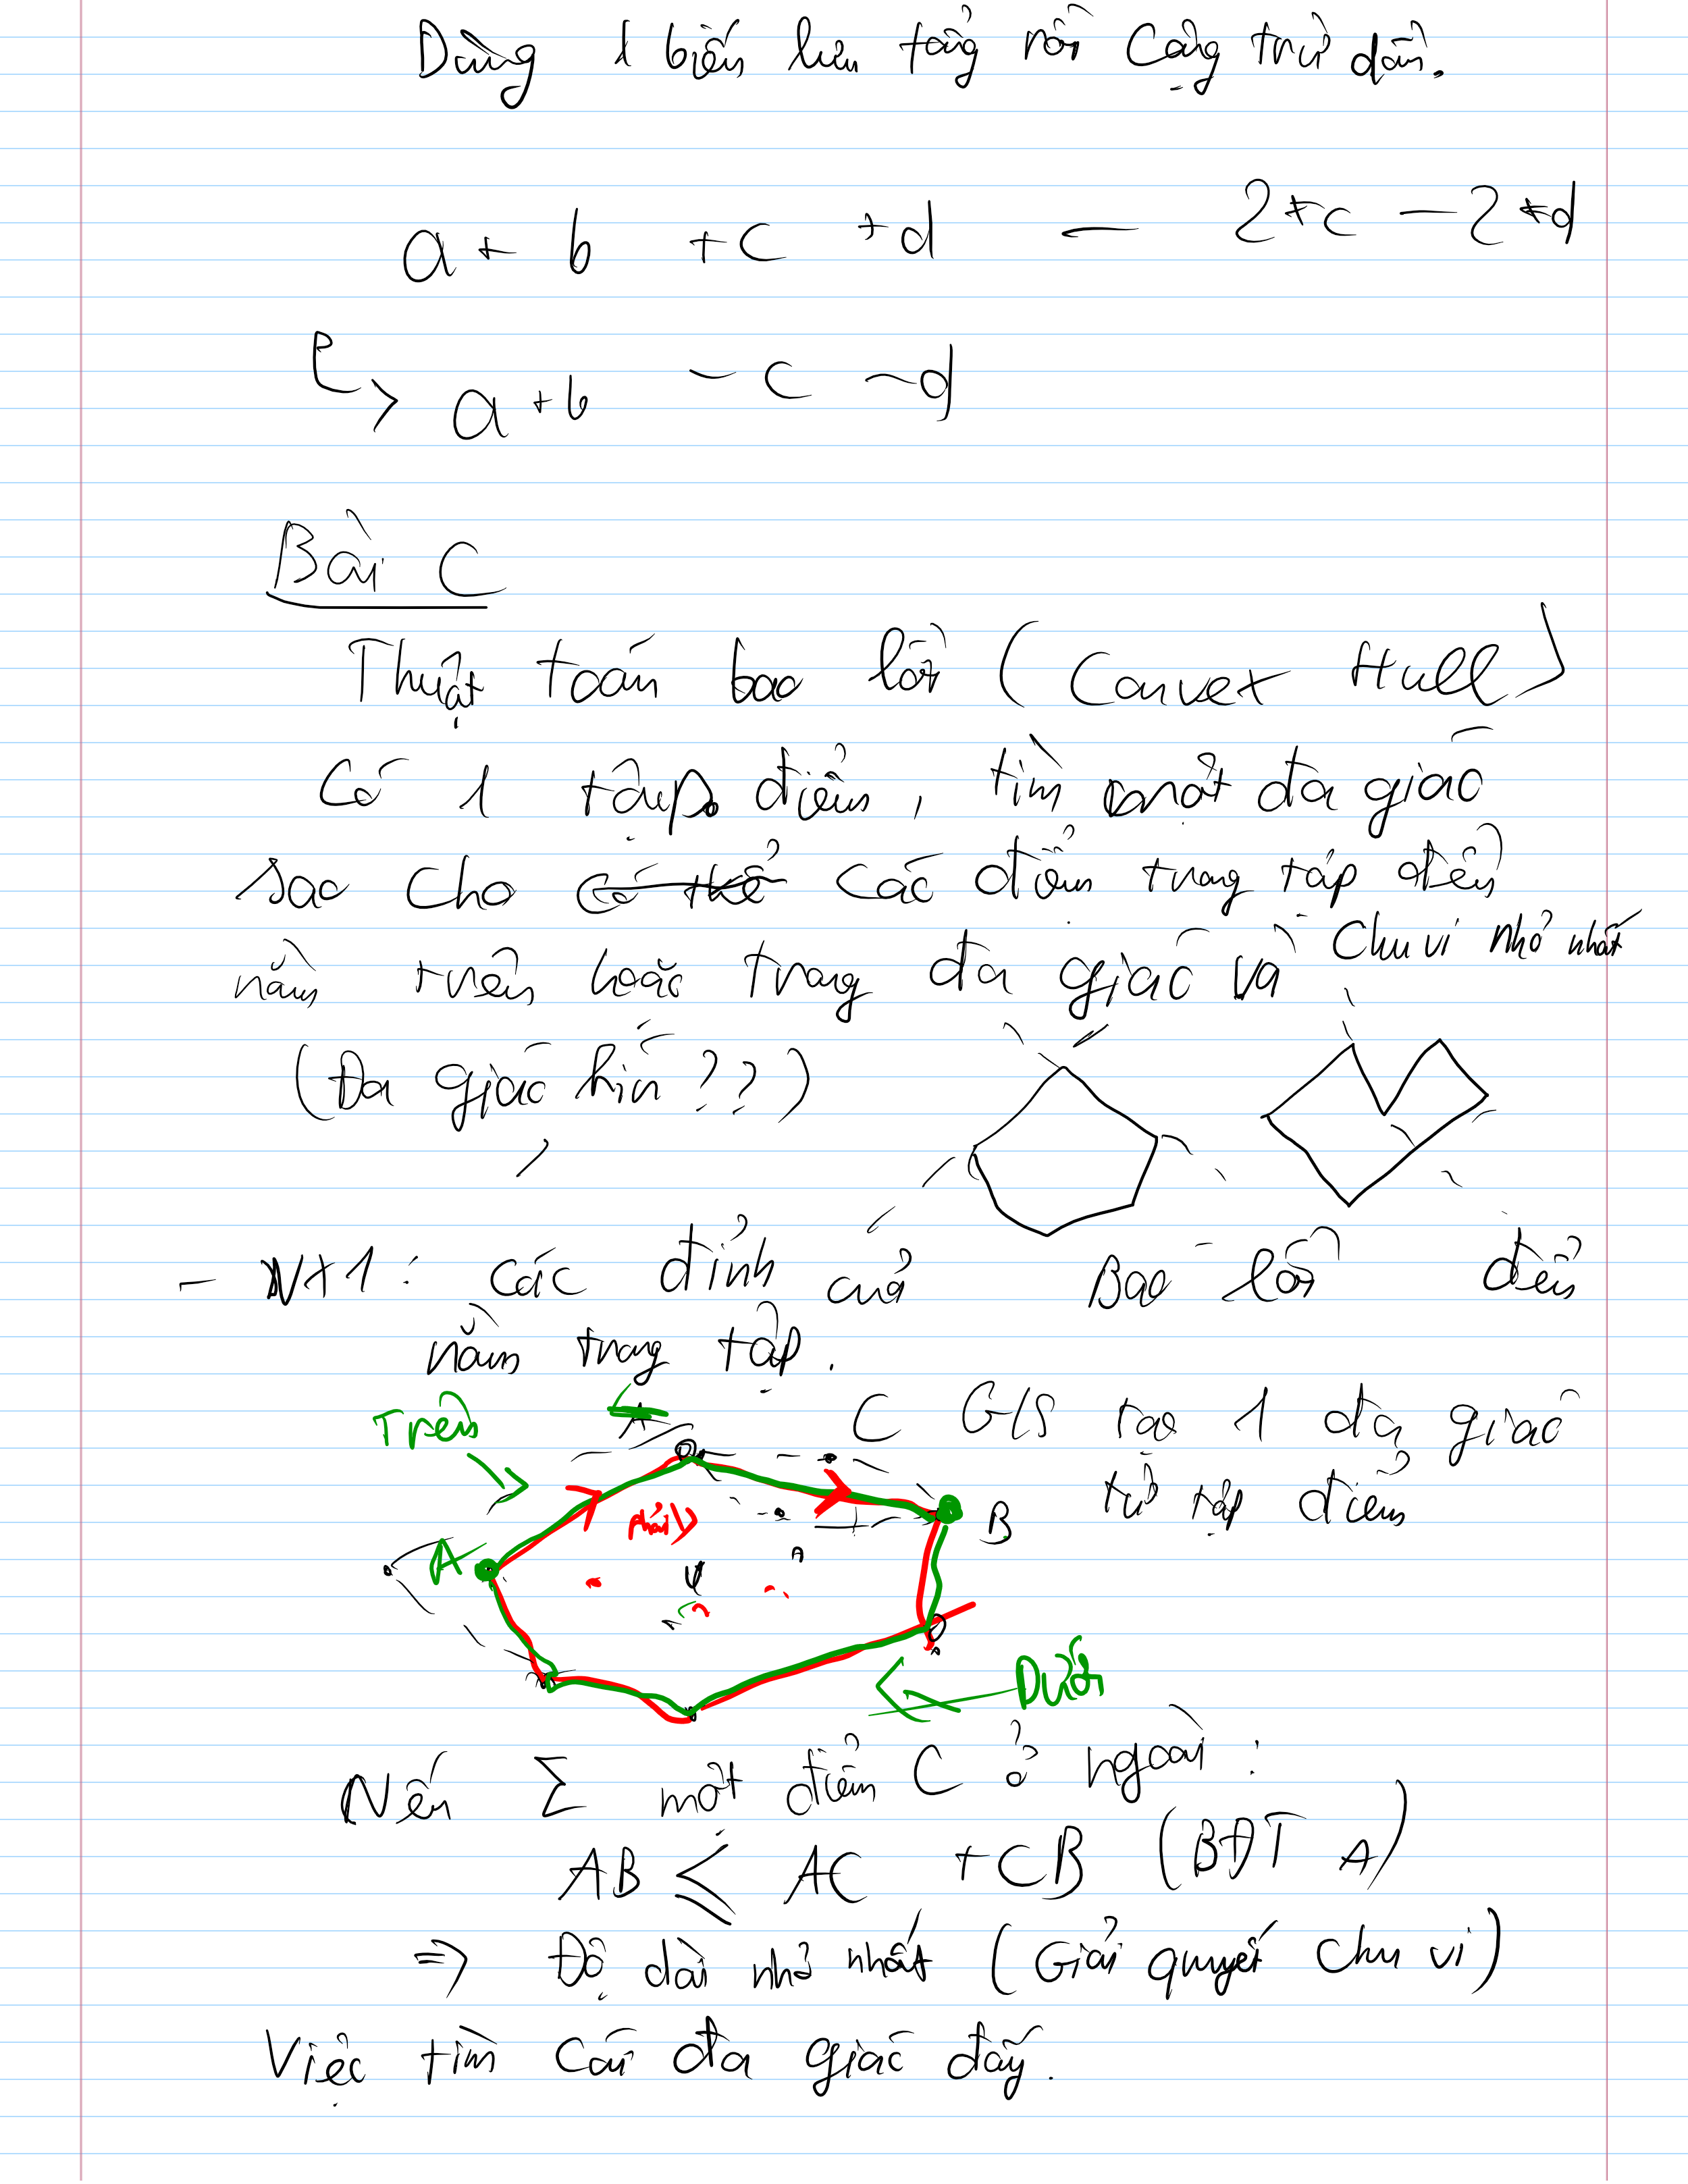 Dùng 1 biến lưu tổng rồi cộng trừ dần.
a + b + c + d - 2*c - 2*d
a + b - c - d
Bài C
Thuật toán bao lồi (Convex Hull)
Có 1 tập điểm, tìm một đa giác
sao cho có thể các điểm trong tập đều
nằm trên hoặc trong đa giác và chu vi nhỏ nhất
(Đa giác kín ??)
- NX1: các đỉnh của Bao lồi đều
nằm trong tập.
Trên
C G/S tạo 1 đa giác
từ tập điểm
phải
B
A
Dưới
Nếu ∑ một điểm C ở ngoài:
AB ≤ AC + CB (BĐT Δ)
=> Độ dài nhỏ nhất (Giải quyết chu vi)
Việc tìm cái đa giác đấy.